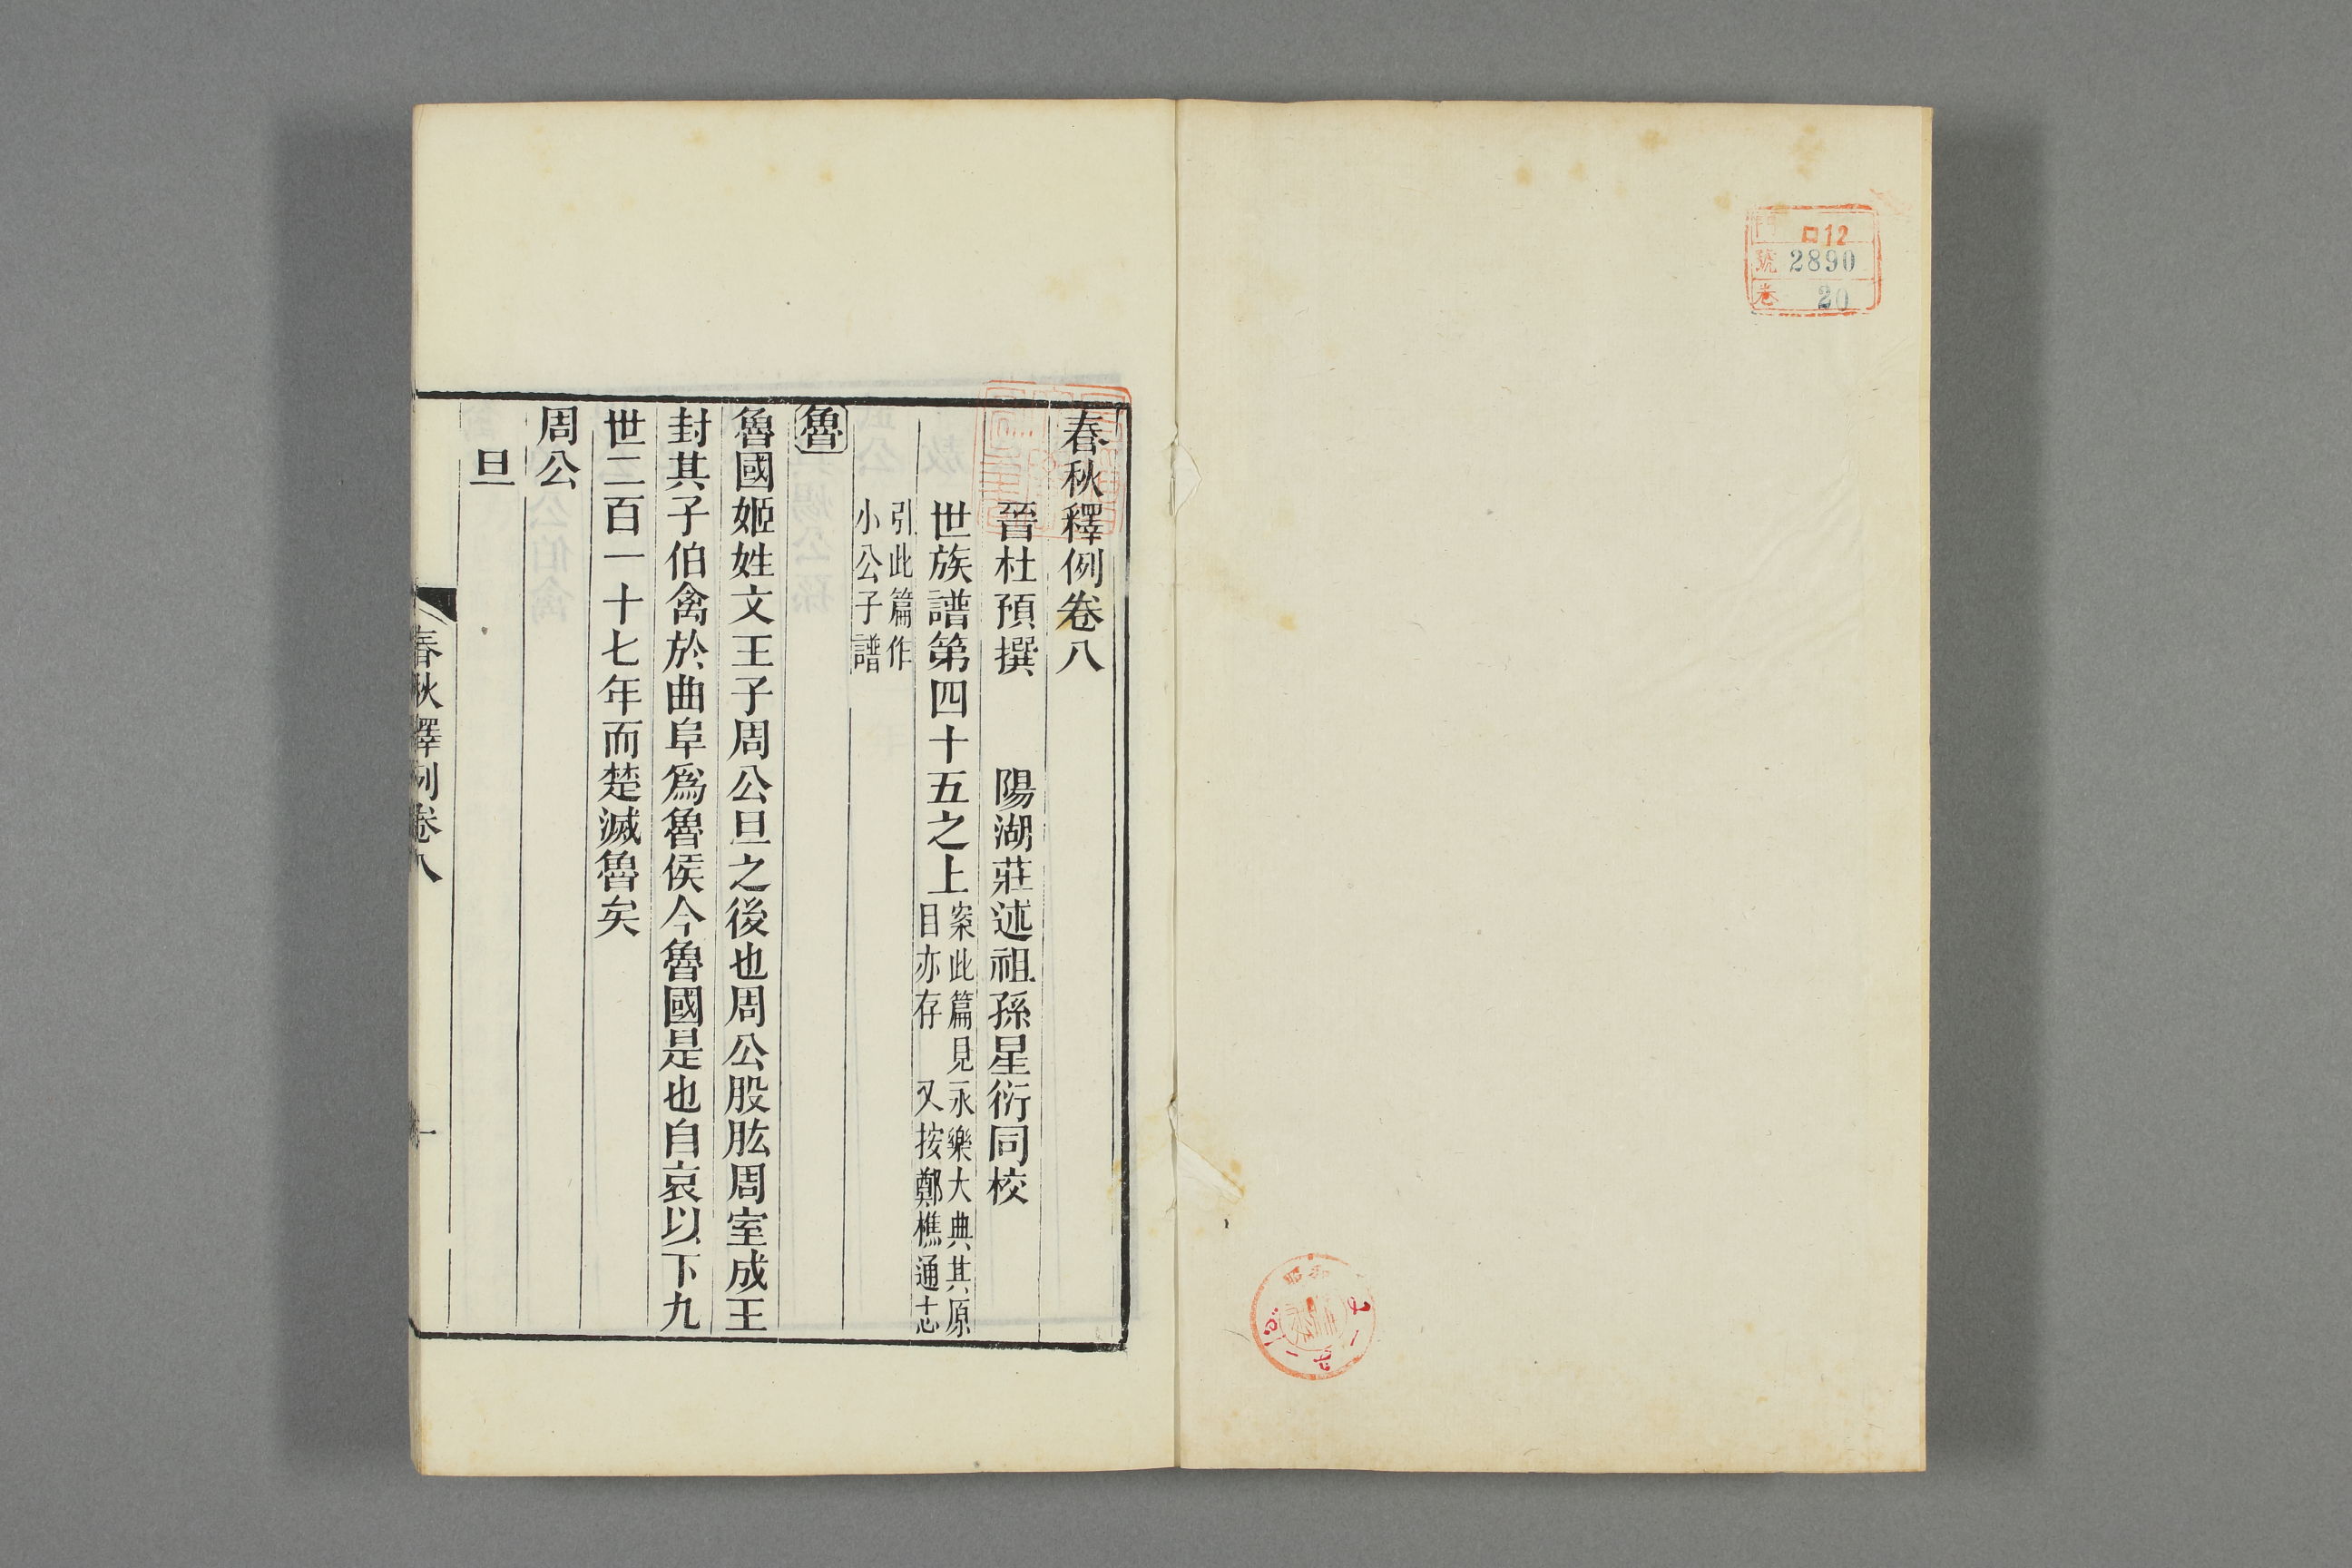 門 口12
號 2890
卷 20
春秋釋例卷八
晉杜預撰 陽湖莊述祖孫星衍同校
世族譜第四十五之上案此篇見永樂大典其原
目亦存 又按鄭樵通志
引此篇作
小公子譜
魯
魯國姬姓文王子周公旦之後也周公股肱周室成王
封其子伯禽於曲阜爲魯侯今魯國是也自哀以下九
世二百一十七年而楚滅魯矣
周公
旦
春秋釋例卷八
一